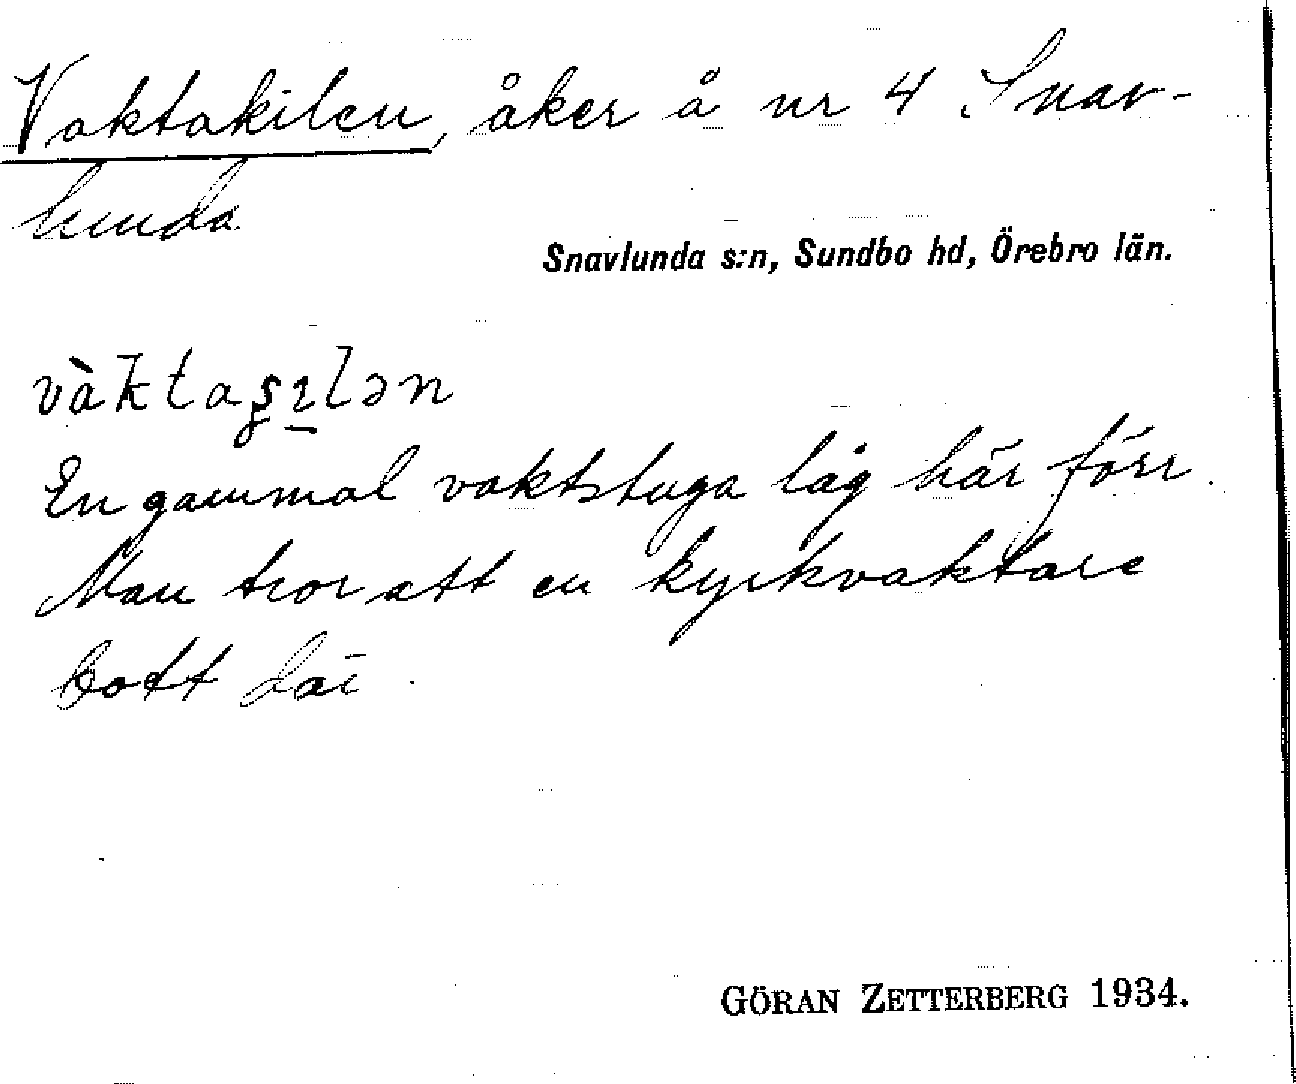 Vaktakilen, åker å nr 4 Snav-
lunda
Snavlunda s:n, Sundbo hd, Örebro län.
vàktaʂɪlən
En gammal vaktstuga låg här förr.
Man tror att en kyrkvaktare
bott där.
GÖRAN ZETTERBERG 1934.